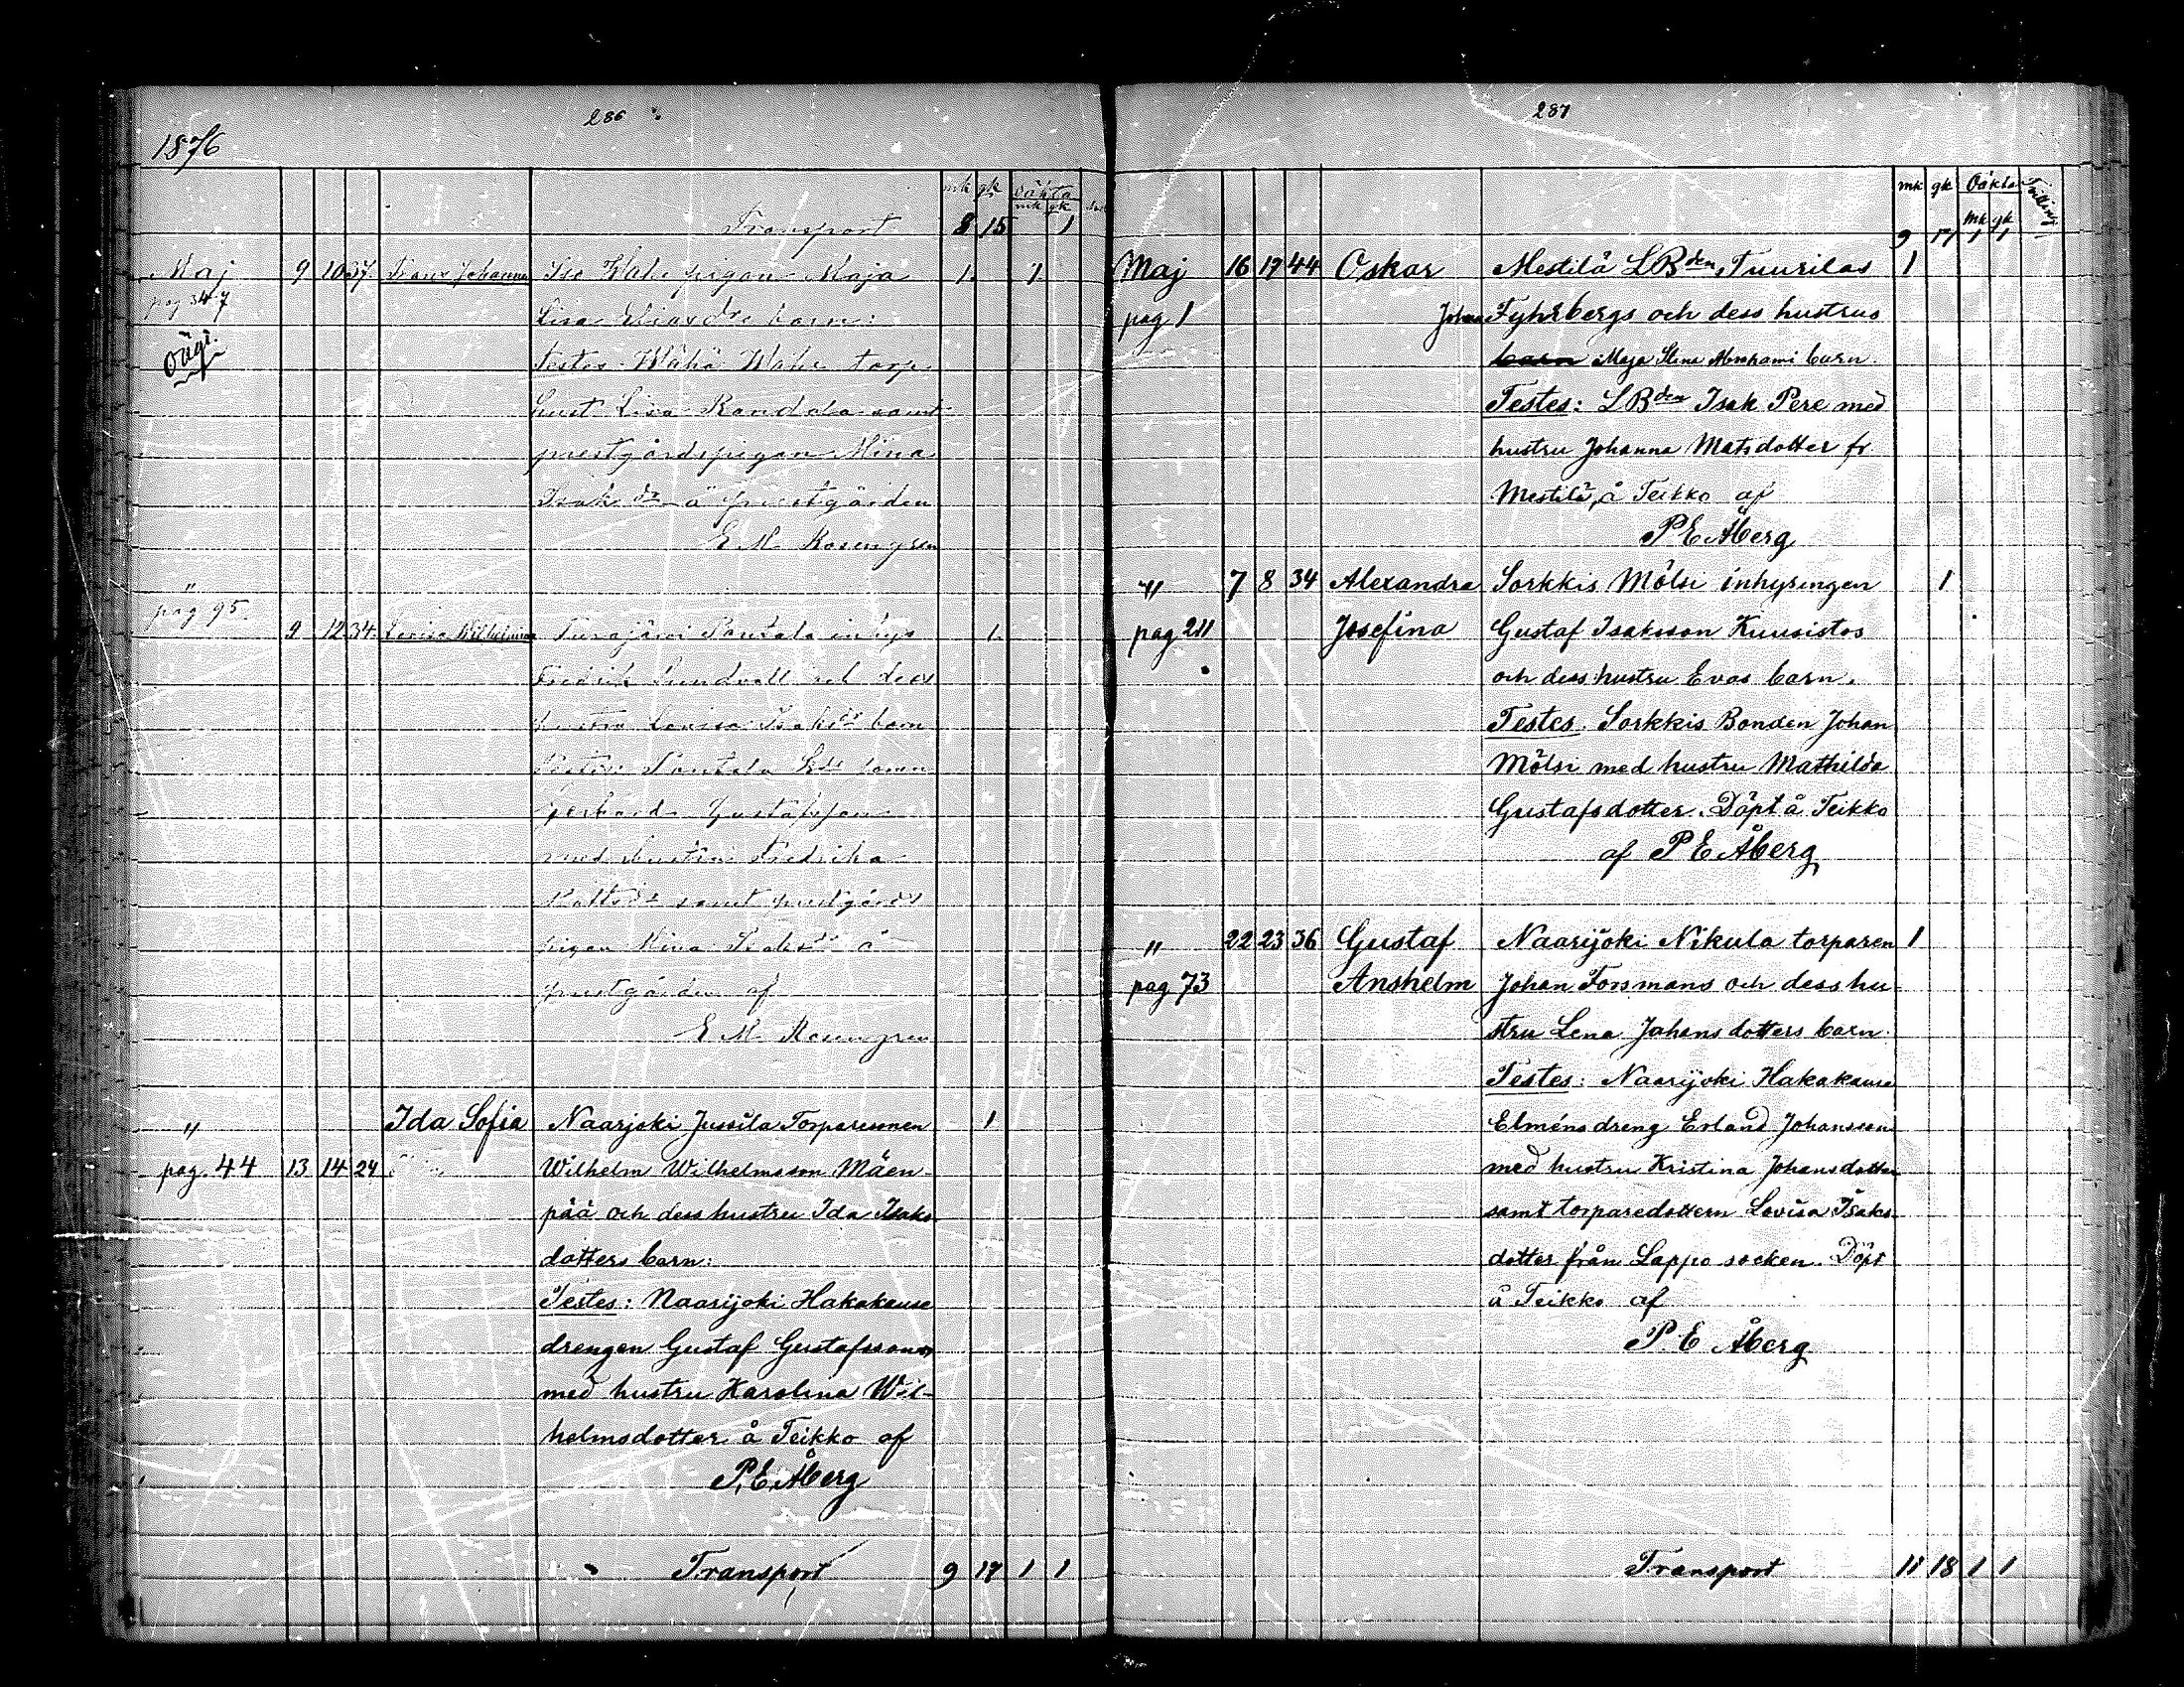 286
1876
mk gk oäkta
mk gk
Transport 8 15 1
Maj 9 10 37 Frans Johannes Iso Wahe pigan Maja 1. 1
pag 347 Lisa Eliasdr barn:
Oägt. Testes Wähä Wahe torp.
hust Lisa Randala samt
prestgårdspigan Mina
Isaksdr å prestgården
E M Rosengren
"
pag 95.
9 12 34. Lovisa Wilhelmina Turajärvi Pantala inhys 1.
Fredrik Lundvall och dess
hustru Lovisa Isaksdr barn
Testes Pantala
Gerhard Gustafsson
med hustru Fredrika
samt prestgårds
pigan Mina Isaksdr å
prestgården af
E M Rosengren
" Ida Sofia Naarjoki Jussila Torparesonen 1
pag. 44 13 14 24 Wilhelm Wilhelmsson Mäen-
pää och dess hustru Ida Isaks
dotters barn:
Testes: Naarijoki Hakakause
drengen Gustaf Gustafsson
med hustru Karolina Wil-
helmsdotter å Teikko af
P. E. Åberg
Transport 9 17 1 1
287
mk gk Oäkta Tvilling
mk gk
9 17 1 1
Maj 16 17 44 Oskar Mestilä LBden, Tuurilas 1
pag 1 Johan Fyhrbergs och dess hustrus
barn Maja Stina Abrahami barn.
Testes: LBden Isak Pere med
hustru Johanna Matsdotter fr
Mestilä, å Teikko af
P E Åberg
" 7 8 34 Alexandra Sorkkis Mölsi inhysingen 1
pag 211 Josefina Gustaf Isaksson Kuusistos
och dess hustru Evas barn.
Testes. Sorkkis Bonden Johan
Mölsi med hustru Mathilda
Gustafsdotter. Döpt å Teikko
af P E Åberg
" 22 23 36 Gustaf Naarijoki Nikula torparen 1
pag 73 Anshelm Johan Forsmans och dess hu-
stru Lena Johansdotters barn.
Testes: Naarijoki Hakakause
Elméns dreng Erland Johansson
med hustru Kristina Johansdotter
samt torparedottern Lovisa Isaks-
dotter från Lappo socken. Döpt
å Teikko af
P. E Åberg
Transport 11 18 1 1